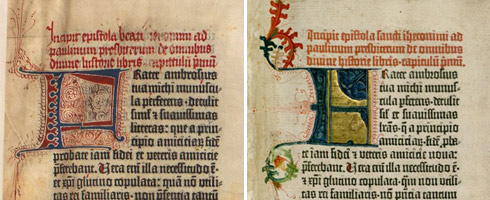 Incipit epistola beati ieronimi ad
paulinum presbiterum de omnibus
divine historie libris. capitulū primū.
FRater ambrosius
tua michi munuscula
perferens. detulit
simul et suavissimas
litteras: que a principio
amiciciar. fidē
probate iam fidei et veteris amicicie
pferebant. Vera eni illa necessitudo ē.
et xpi glutino copulata: quā non utilitas
rei familiaris. nō pntia tantum
Incipit epistola sancti iheronimi ad
paulinum presbiterum de omnibus
divine historie libris. capitulū primū.
FRater ambrosius
tua michi munuscula
pferens. detulit
sil et suavissimas
lras. q a principio
amiciciar. fidē
te iam fidei et veteris amicicie nova:
pferebant. Vera eni illa necessitudo ē.
et xpi glutino copulata. quā non utilitas
rei familiaris. nō pntia tantum